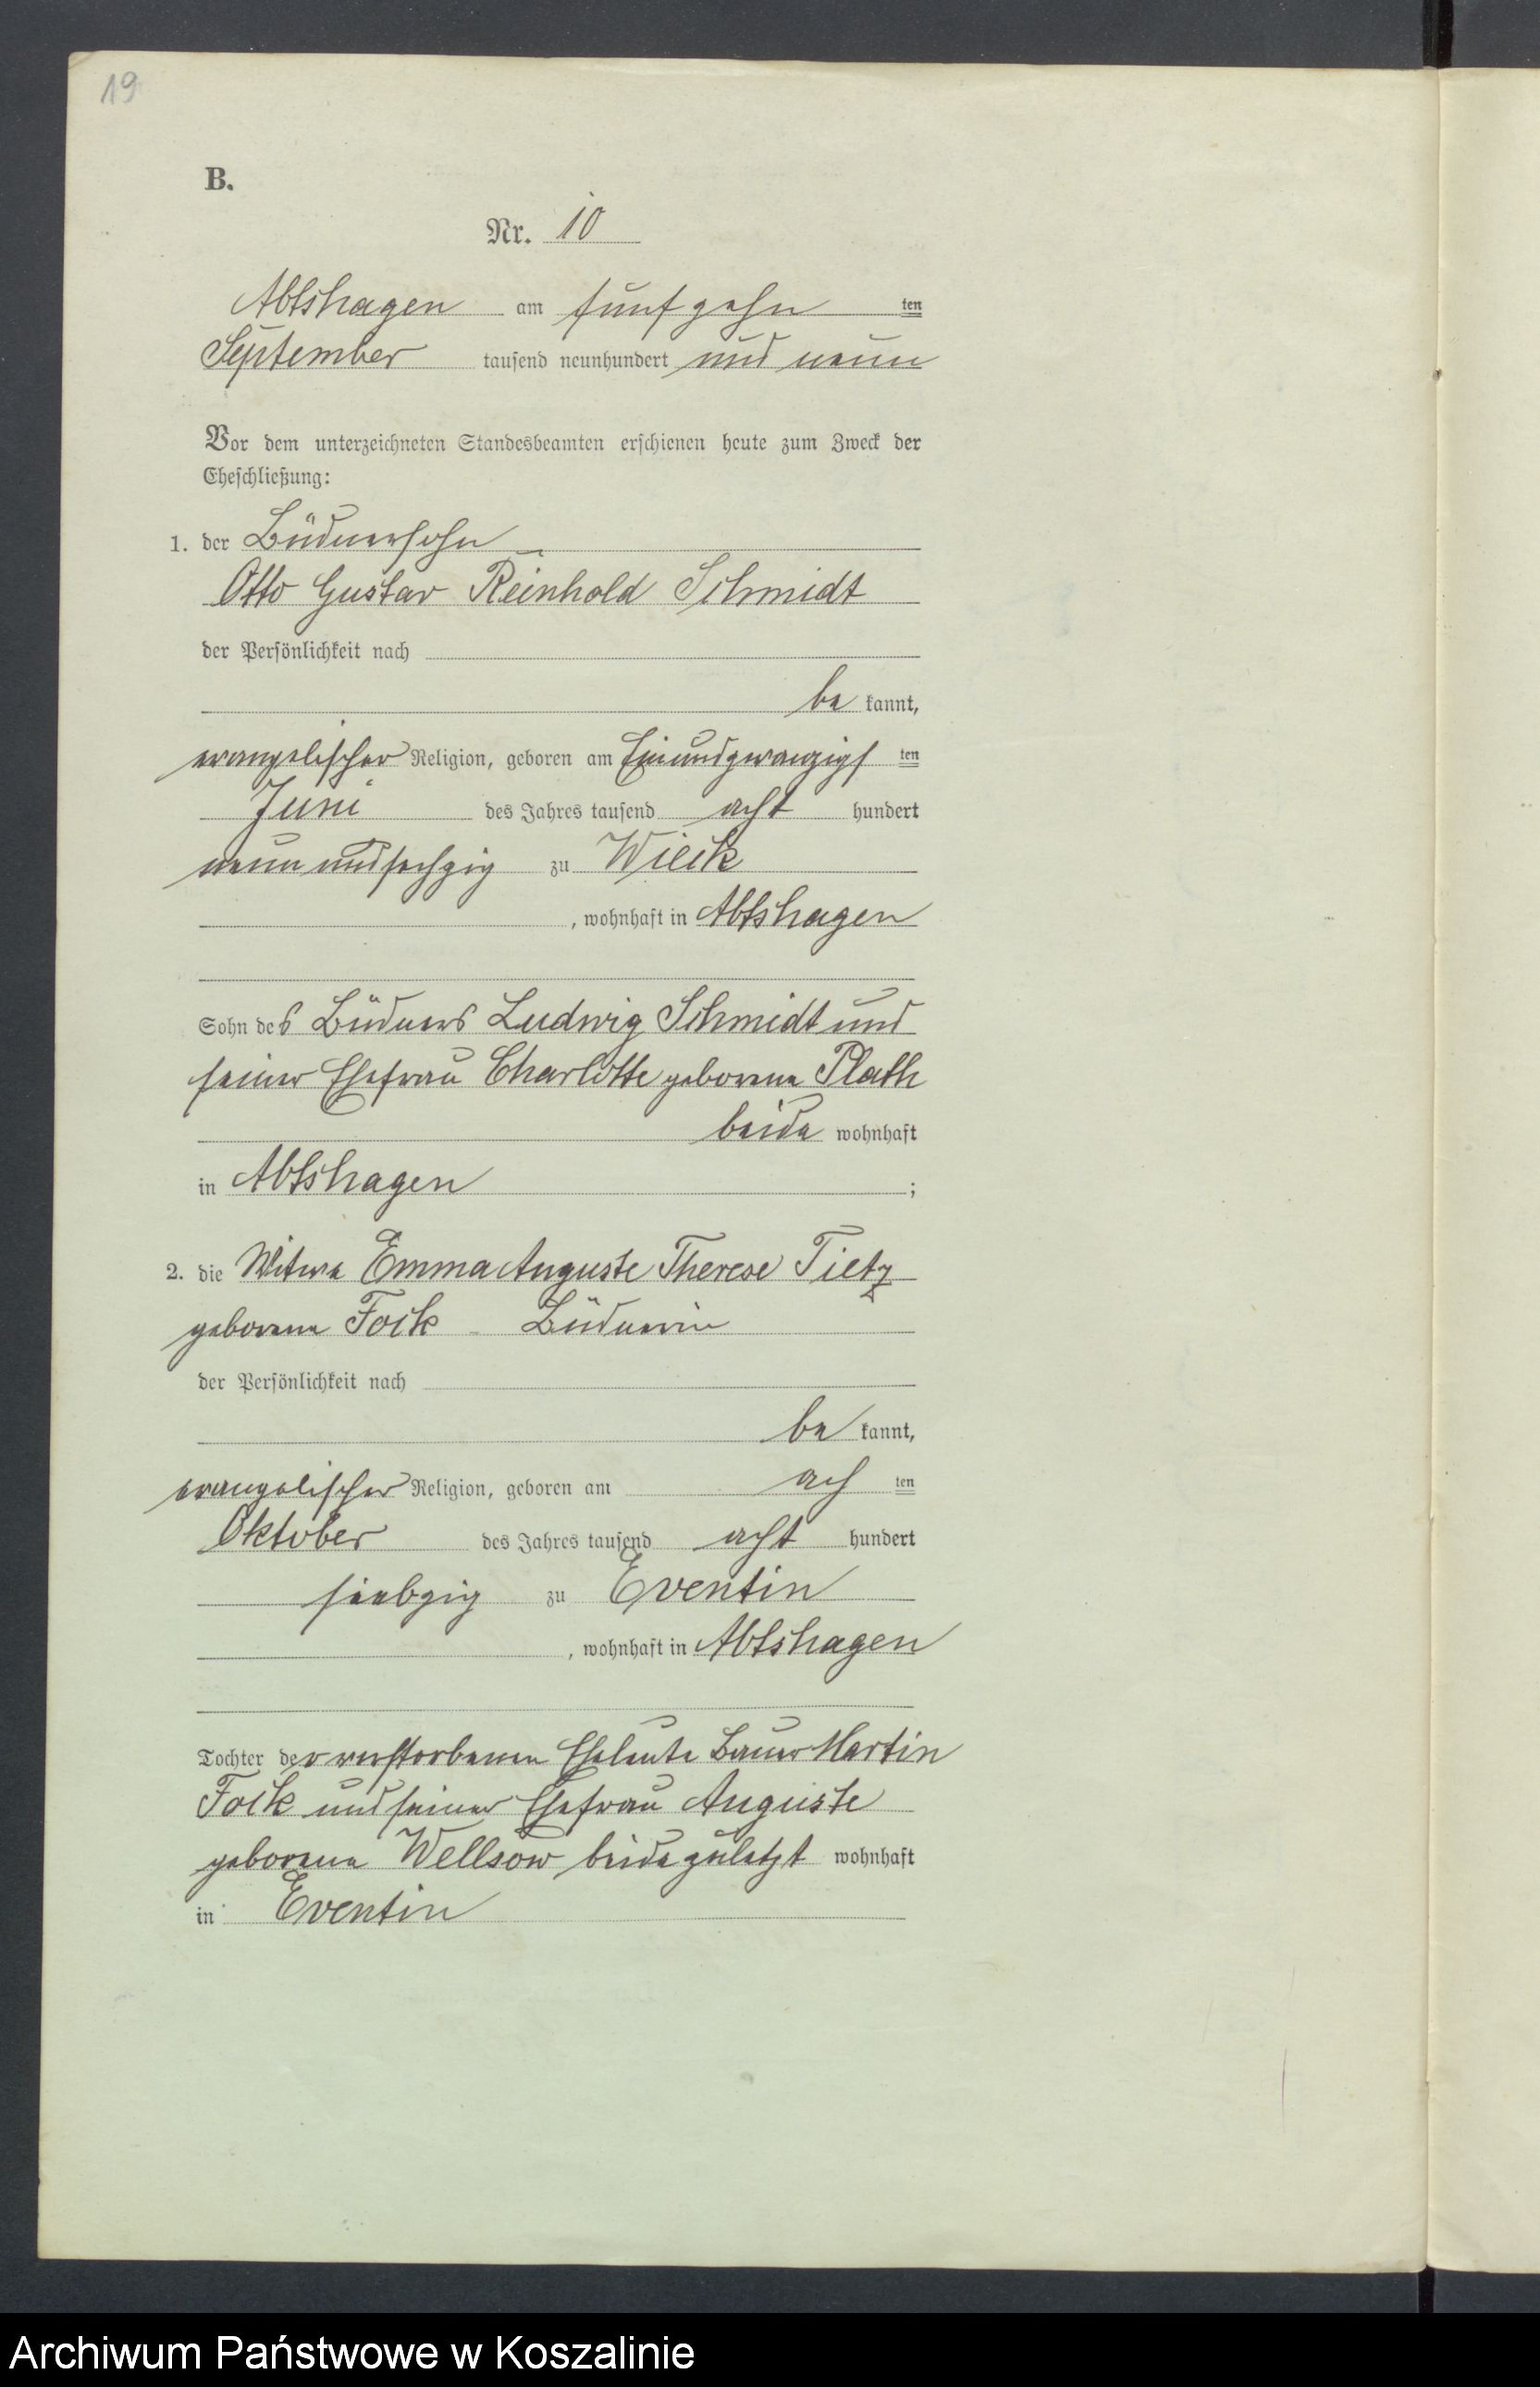 19
B.
Nr. 10
Abtshagen am fünfzehn ten
September tausend neunhundert und neun
Vor dem unterzeichneten Standesbeamten erschienen heute zum Zweck der
Eheschließung:
1. der Büdnersohn
Otto Gustav Reinhold Schmidt
der Persönlichkeit nach
be kannt,
evangelischer Religion, geboren am Einundzwanzigs ten
Juni des Jahres tausend acht hundert
neun und sechzig zu Wieck
, wohnhaft in Abtshagen
Sohn des Büdners Ludwig Schmidt und
seiner Ehefrau Charlotte geborene Plath
beide wohnhaft
in Abtshagen ;
2. die Witwe Emma Auguste Therese Tietz
geborene Fock Büdnerin
der Persönlichkeit nach
be kannt,
evangelischer Religion, geboren am ach ten
Oktober des Jahres tausend acht hundert
siebzig zu Eventin
, wohnhaft in Abtshagen
Tochter der verstorbenen Eheleute Bauer Martin
Fock und seiner Ehefrau Auguste
geborene Wellsow beide zuletzt wohnhaft
in Eventin
Archiwum Państwowe w Koszalinie